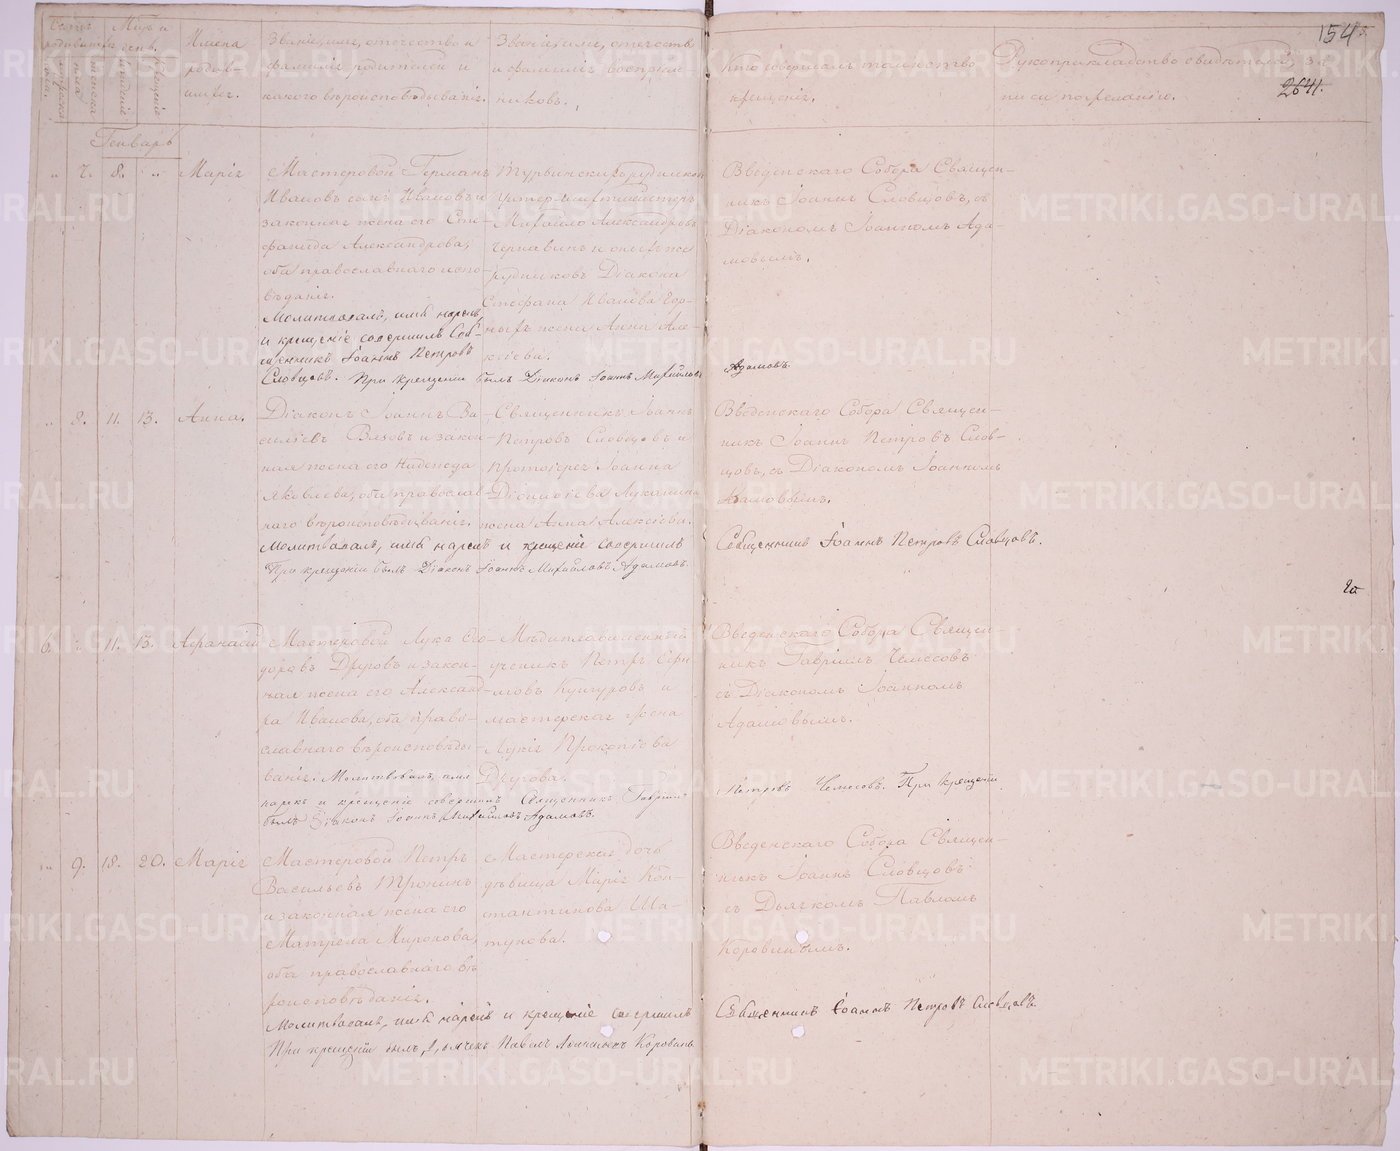 154
2641.
Счетъ родившихся
Мѣс. и день.
Имена родив-
шихся.
Званіе, имя, отчество и
фамилія родителей и
какого вѣроисповѣдыванія.
Званіе, имя, отчество
и фамилія воспріем-
никовъ.
Кто совершалъ таинство
крещенія.
Рукоприкладство свидѣтелей за-
писи по желанію.
Генварь
" 7. 8. " Марія
Мастеровой Германъ
Ивановъ сынъ Ивановъ и
законная жена его
Александрова,
оба православнаго испо-
вѣданія.
Молитвовалъ, имя нарекъ
и крещеніе совершилъ Свя-
щенникъ Іоаннъ Петровъ
Словцовъ. При крещеніи былъ Діаконъ Іоаннъ Михайловъ
Адамовъ
Турьинскихъ рудниковъ
Михайло Александровъ
рудниковъ Діакона
Стефана Иванова
жена Анна Але-
ксіева.
Введенскаго Собора Священ-
никъ Іоаннъ Словцовъ, съ
Діакономъ Іоанномъ Ада-
мовымъ.
" 8. 11. 13. Анна.
Діаконъ Іоаннъ Ва-
силіевъ Вяховъ и закон-
ная жена его Надежда
Яковлева, оба православ-
наго вѣроисповѣдыванія.
Молитвовалъ, имя нарекъ и крещеніе совершилъ
Священникъ Іоаннъ Петровъ Словцовъ.
При крещеніи былъ Діаконъ Іоаннъ Михайловъ Адамовъ
Священникъ Іоаннъ
Петровъ Словцовъ и
Протоіерея Іоанна
Діонисіева Луканина
жена Анна Алексіева.
Введенскаго Собора Священ-
никъ Іоаннъ Петровъ Слов-
цовъ, съ Діакономъ Іоанномъ
Адамовымъ.
6. " 11. 13. Афанасій
Мастеровой Лука Ѳео-
доровъ Друговъ и закон-
ная жена его Александ-
ра Иванова, оба право-
славнаго вѣроисповѣды-
ванія. Молитвовалъ, имя
нарекъ и крещеніе совершилъ Священникъ Гавріилъ
Петровъ Чемесовъ. При крещеніи
былъ Діаконъ Іоаннъ Михайловъ Адамовъ.
Мѣдиплавиленный
ученикъ Петръ Ефи-
мовъ Кунгуровъ и
мастерская жена
Лукія Прокопіева
Другова.
Введенскаго Собора Священ-
никъ Гавріилъ Чемесовъ
съ Діакономъ Іоанномъ
Адамовымъ.
" 9. 18. 20. Марія
Мастеровой Петръ
Васильевъ Тронинъ
и законная жена его
Матрена Миронова,
оба православнаго вѣ-
роисповѣданія.
Молитвовалъ, имя нарекъ и крещеніе совершилъ
Священникъ Іоаннъ Петровъ Словцовъ.
При крещеніи былъ Дьячекъ Павелъ Коровинъ
Мастерская дочь
дѣвица Марія Кон-
стантинова Ша-
тунова.
Введенскаго Собора Священ-
никъ Іоаннъ Словцовъ
съ Дьячкомъ Павломъ
Коровинымъ.
METRIKI.GASO-URAL.RU